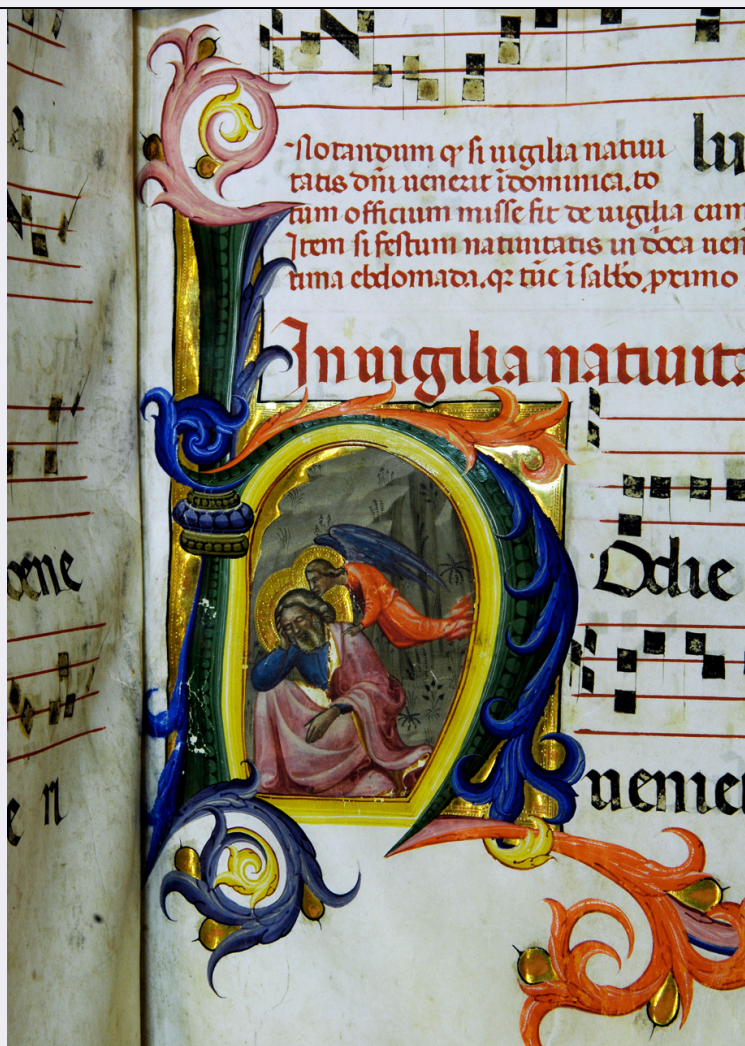 lu
Notandum qꝫ si uigilia natiui
tatis dñi uenerit ĩ dominica. to
tum officium misse fit de uigilia cum
Item si festum natiuitatis in
tima ebdomada. qꝛ tũc ĩ sabbo. primo
In uigilia natiuita
Hodie
uenie
e n